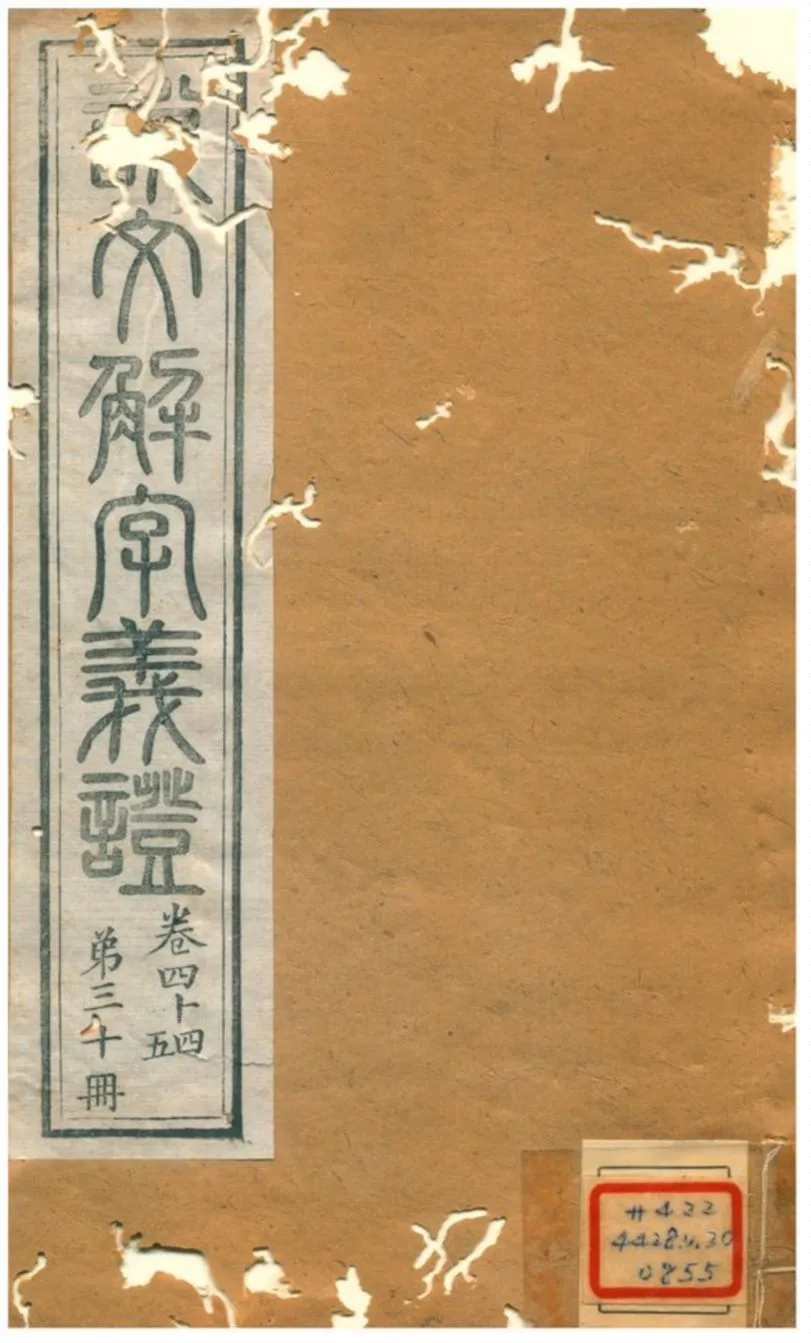 說文解字義證
卷四十四
五
弟三十冊
#422
4428.v.30
0855